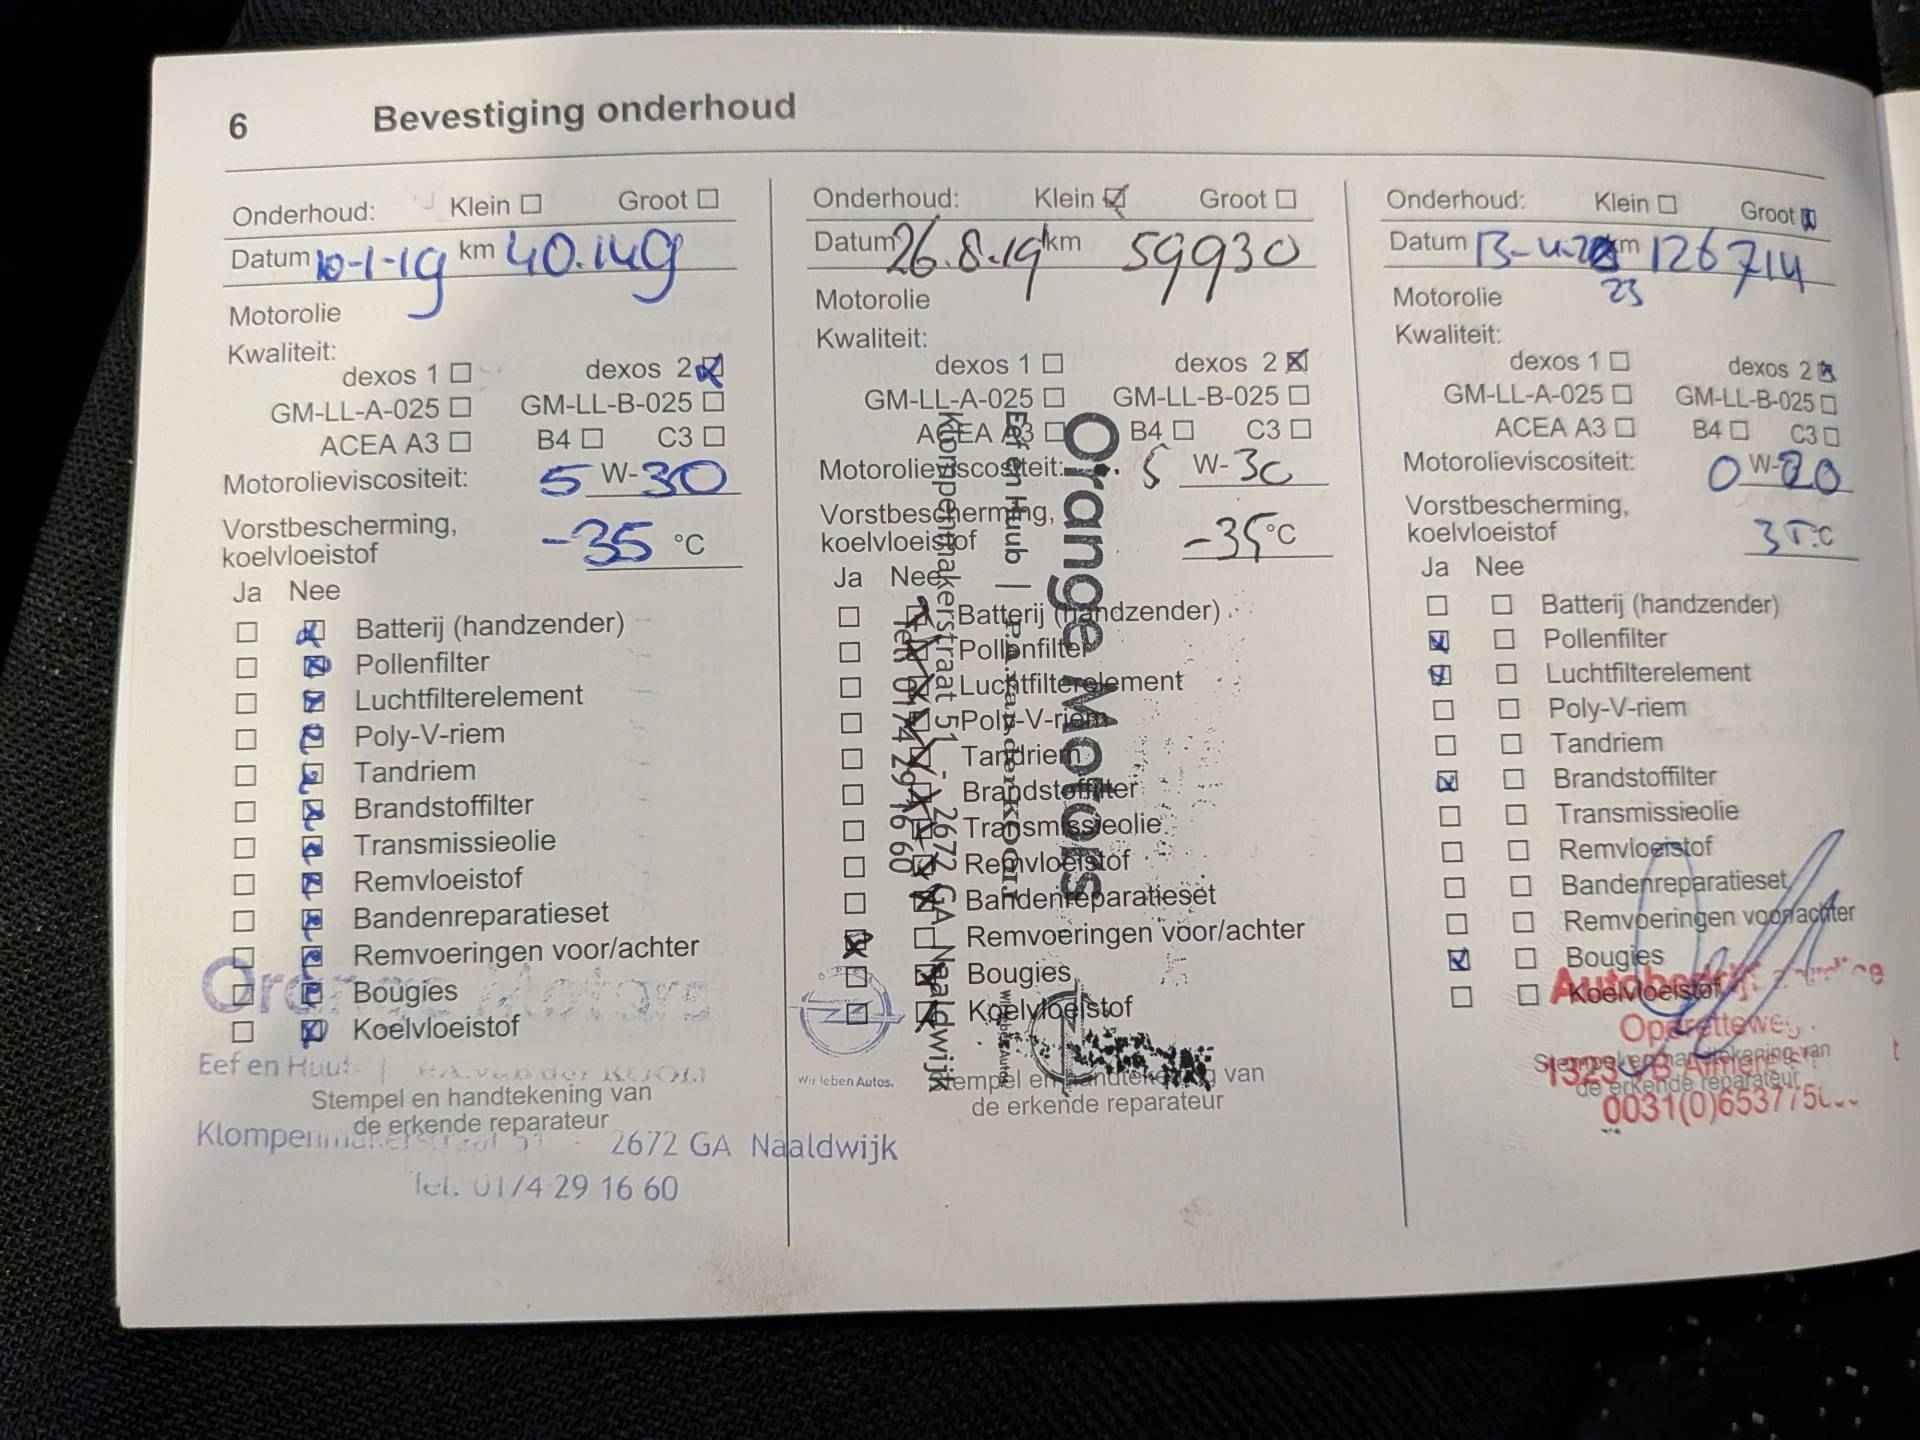 6 Bevestiging onderhoud
Onderhoud: Klein Groot
Datum 10-1-19 km 40.149
Motorolie
Kwaliteit:
dexos 1 dexos 2
GM-LL-A-025 GM-LL-B-025
ACEA A3 B4 C3
Motorolieviscositeit: 5 W-30
Vorstbescherming,
koelvloeistof -35 °C
Ja Nee
Batterij (handzender)
Pollenfilter
Luchtfilterelement
Poly-V-riem
Tandriem
Brandstoffilter
Transmissieolie
Remvloeistof
Bandenreparatieset
Remvoeringen voor/achter
Bougies
Koelvloeistof
Eef en Huub
Stempel en handtekening van
de erkende reparateur
2672 GA Naaldwijk
Tel. 0174 29 16 60
Onderhoud: Klein Groot
Datum 26.8.19 km 59930
Motorolie
Kwaliteit:
dexos 1 dexos 2
GM-LL-A-025 GM-LL-B-025
ACEA A3 B4 C3
Motorolieviscositeit: 5 W-30
Vorstbescherming,
koelvloeistof -35 °C
Ja Nee
Batterij (handzender)
Pollenfilter
Luchtfilterelement
Poly-V-riem
Tandriem
Brandstoffilter
Transmissieolie
Remvloeistof
Bandenreparatieset
Remvoeringen voor/achter
Bougies
Koelvloeistof
Orange Motors
Eef en Huub | P.A. van der KOOIJ
Klompenmakerstraat 51 - 2672 GA Naaldwijk
Tel. 0174 29 16 60
Wir leben Autos.
Wir leben Autos.
Stempel en handtekening van
de erkende reparateur
Onderhoud: Klein Groot
Datum 13-4-23 km 126714
23
Motorolie
Kwaliteit:
dexos 1 dexos 2
GM-LL-A-025 GM-LL-B-025
ACEA A3 B4 C3
Motorolieviscositeit: 0 W-20
Vorstbescherming,
koelvloeistof 35 °C
Ja Nee
Batterij (handzender)
Pollenfilter
Luchtfilterelement
Poly-V-riem
Tandriem
Brandstoffilter
Transmissieolie
Remvloeistof
Bandenreparatieset
Remvoeringen voor/achter
Bougies
Koelvloeistof
Autobedrijf
Operetteweg
Stempel en handtekening van
1323 Almere
de erkende reparateur